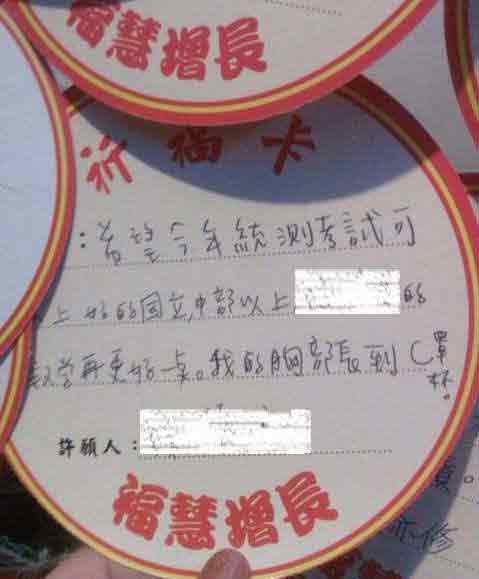 福慧增長
祈福卡
：希望今年統測考試可
上好的国立,中部以上
的
数学再更好一点。我的胸部長到C罩杯。
許願人：
福慧增長
亦修